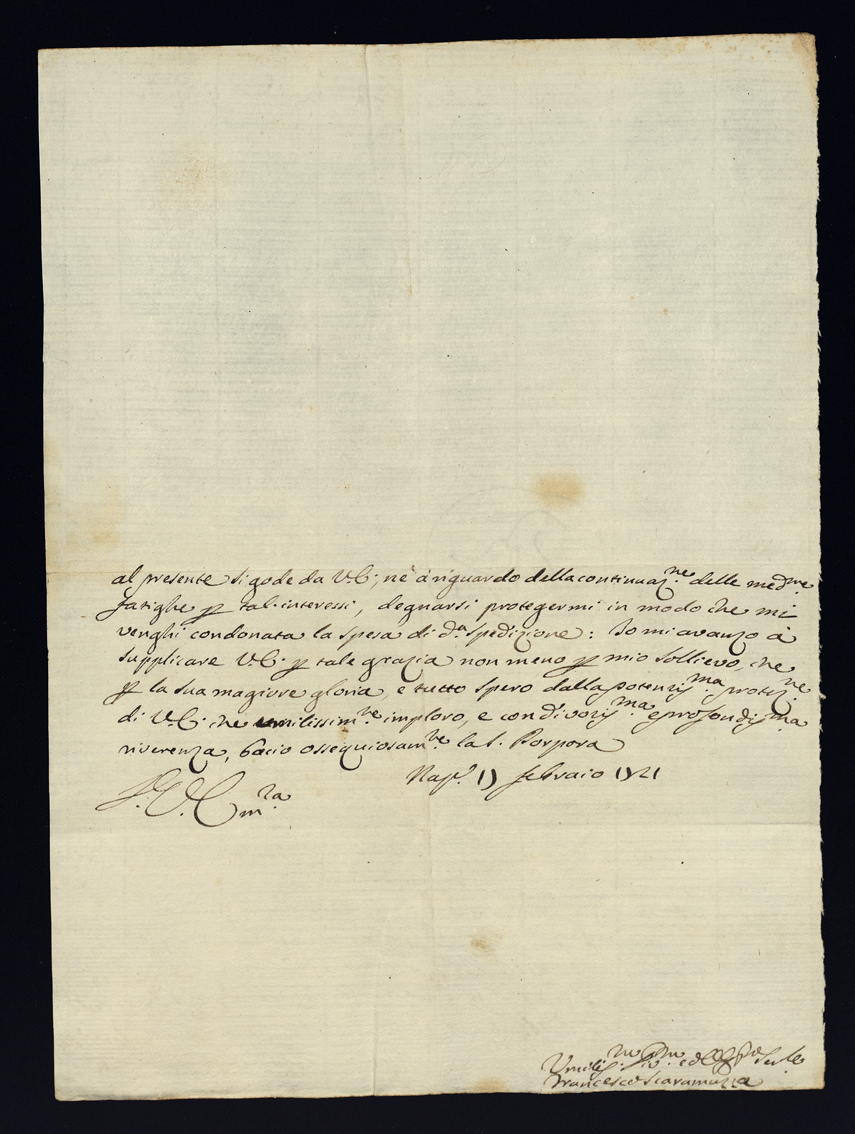 al presente si gode da V.E.; nè à riguardo della continuaz.ne delle med.me
fatighe p tal' interessi, degnarsi protegermi in modo che mi
venghi condonata la spesa di d.a spedizione: Io mi avanzo à
supplicare V.E. p tale grazia non meno p mio sollievo, che
p la sua magiore gloria e tutto spero dalla potentis.ma protez.ne
di V.E. che umilissim.te imploro, e con divotis.ma e profondis.ma
riverenza, bacio ossequiosam.te la S. Porpora
Nap. 17 febraio 1721
S.V.E. m.ra
Umilis.mo Div.mo ed Ser.re
Francesco Scaramuzza